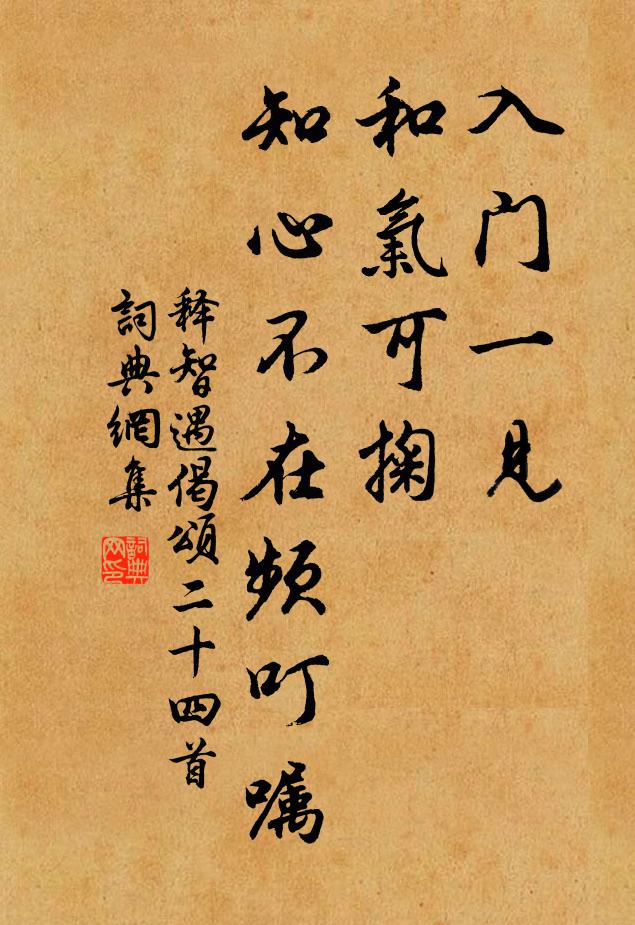 入门一见
和氣可掬
知心不在频叮嘱
释智遇偈頌二十四首
詞典網集
詞典网印